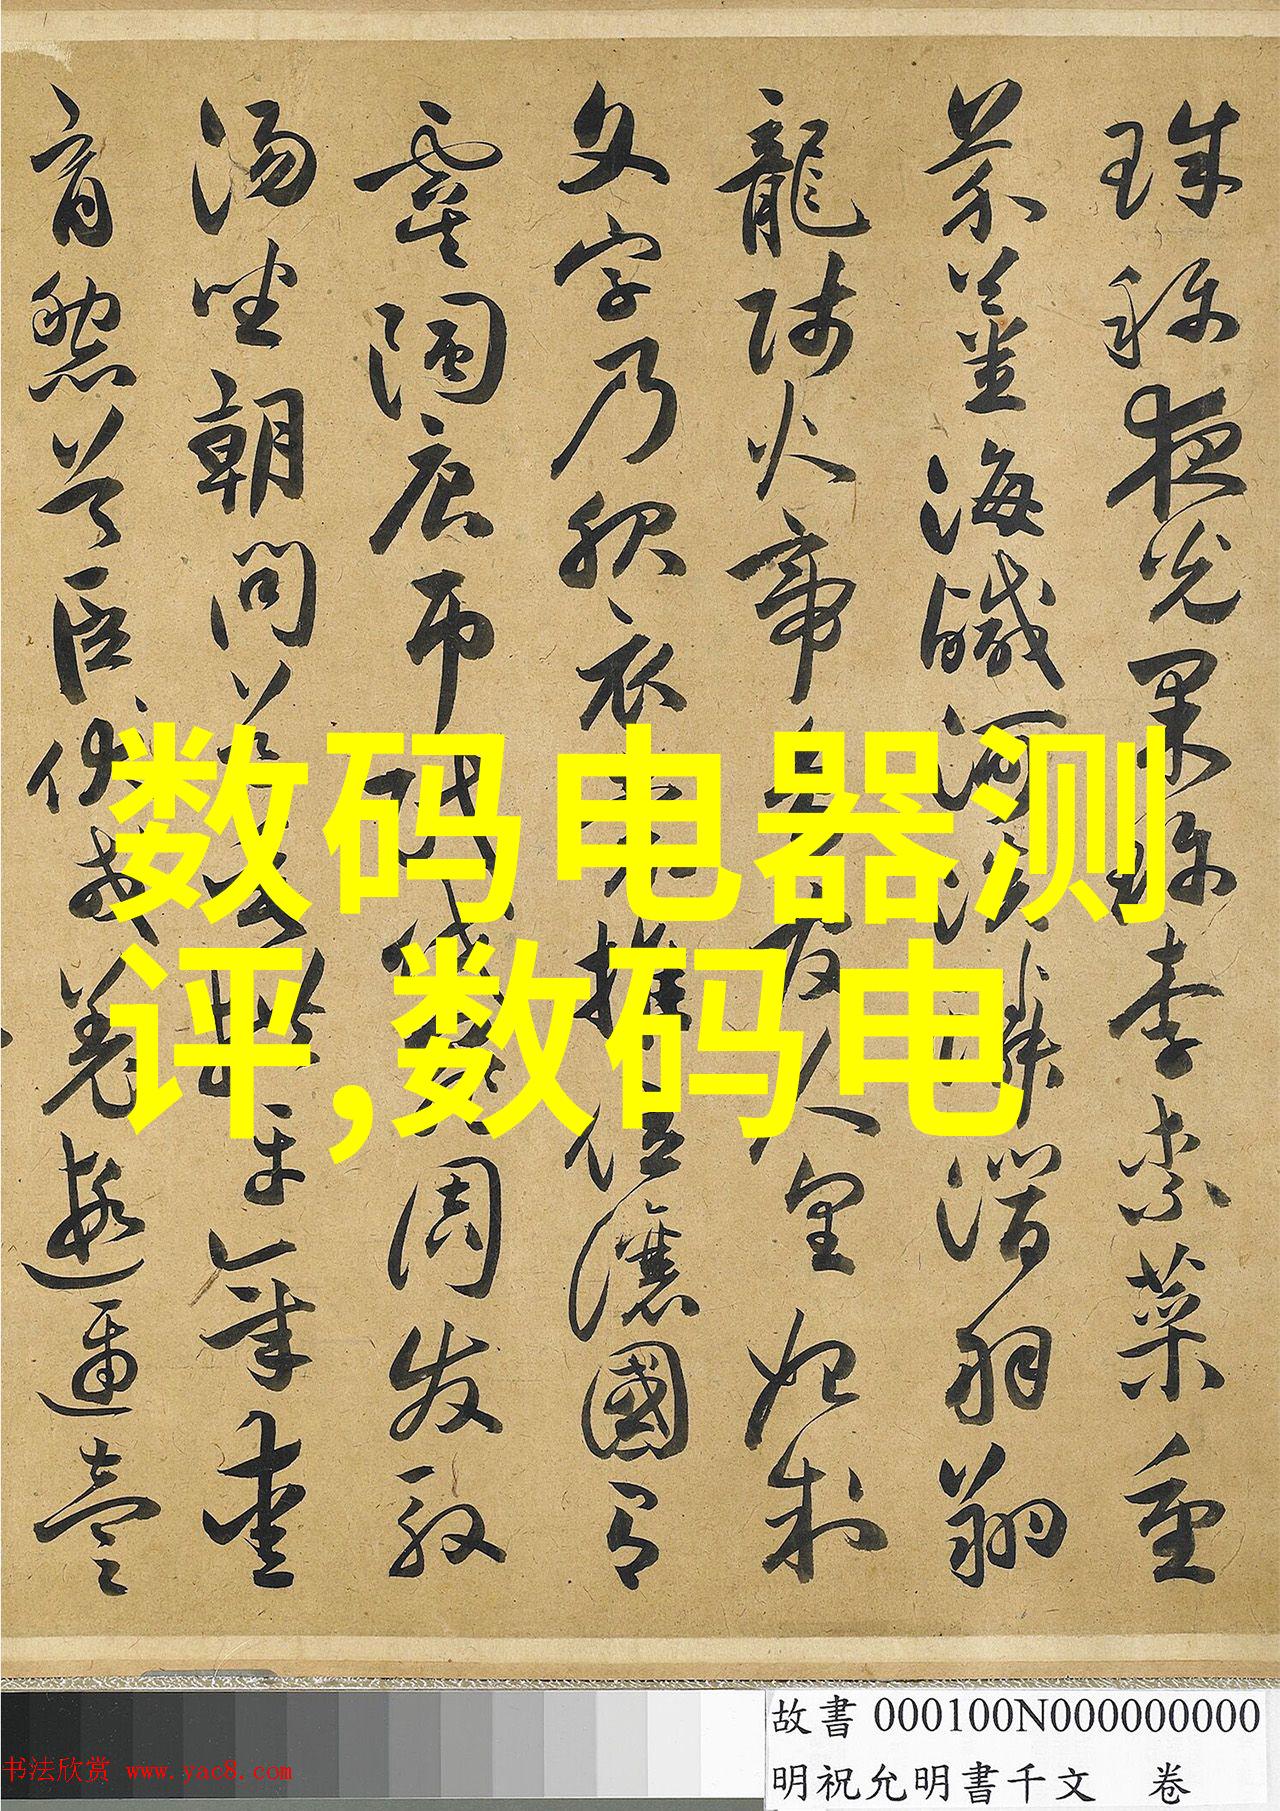 珠称夜光果珍李柰菜重
芥薑海鹹河淡鱗潛羽翔
龍師火帝鳥官人皇始制
文字乃服衣裳推位讓國有
虞陶唐弔民伐罪周发殷
湯坐朝問道垂拱平章愛
育黎首臣伏戎羌遐邇壹
数码电器测
评,数码电
故書 000100N000000000
明祝允明書千文 卷
书法欣赏 www.yac8.com